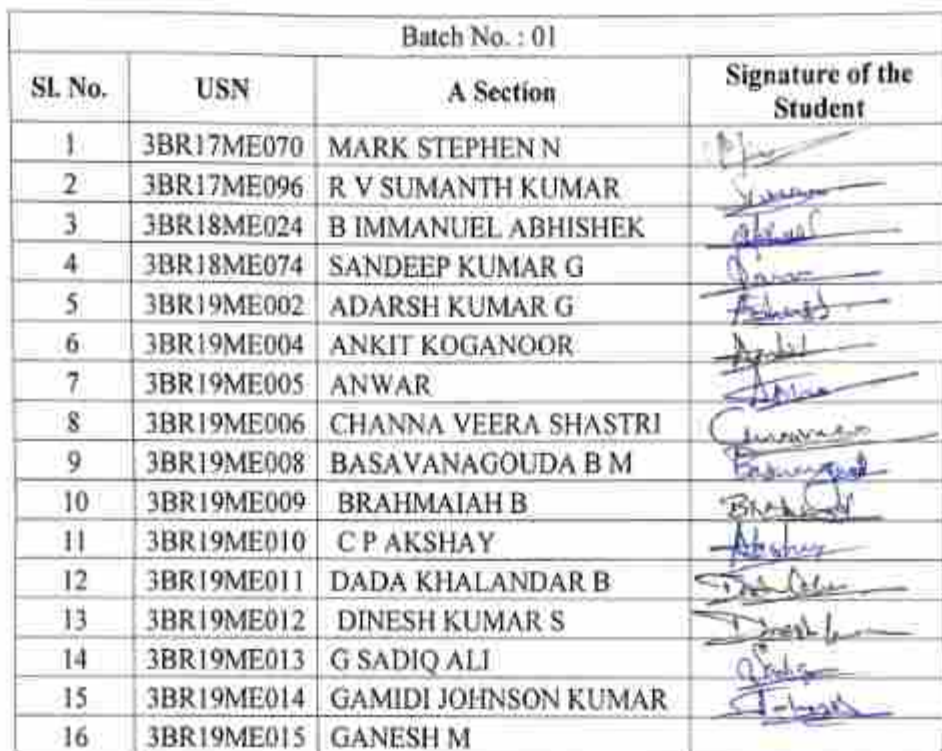 Batch No. : 01
Sl. No. USN A Section Signature of the Student
1 3BR17ME070 MARK STEPHEN N
2 3BR17ME096 R V SUMANTH KUMAR
3 3BR18ME024 B IMMANUEL ABHISHEK
4 3BR18ME074 SANDEEP KUMAR G
5 3BR19ME002 ADARSH KUMAR G
6 3BR19ME004 ANKIT KOGANOOR
7 3BR19ME005 ANWAR
8 3BR19ME006 CHANNA VEERA SHASTRI
9 3BR19ME008 BASAVANAGOUDA B M
10 3BR19ME009 BRAHMAIAH B
11 3BR19ME010 C P AKSHAY
12 3BR19ME011 DADA KHALANDAR B
13 3BR19ME012 DINESH KUMAR S
14 3BR19ME013 G SADIQ ALI
15 3BR19ME014 GAMIDI JOHNSON KUMAR
16 3BR19ME015 GANESH M